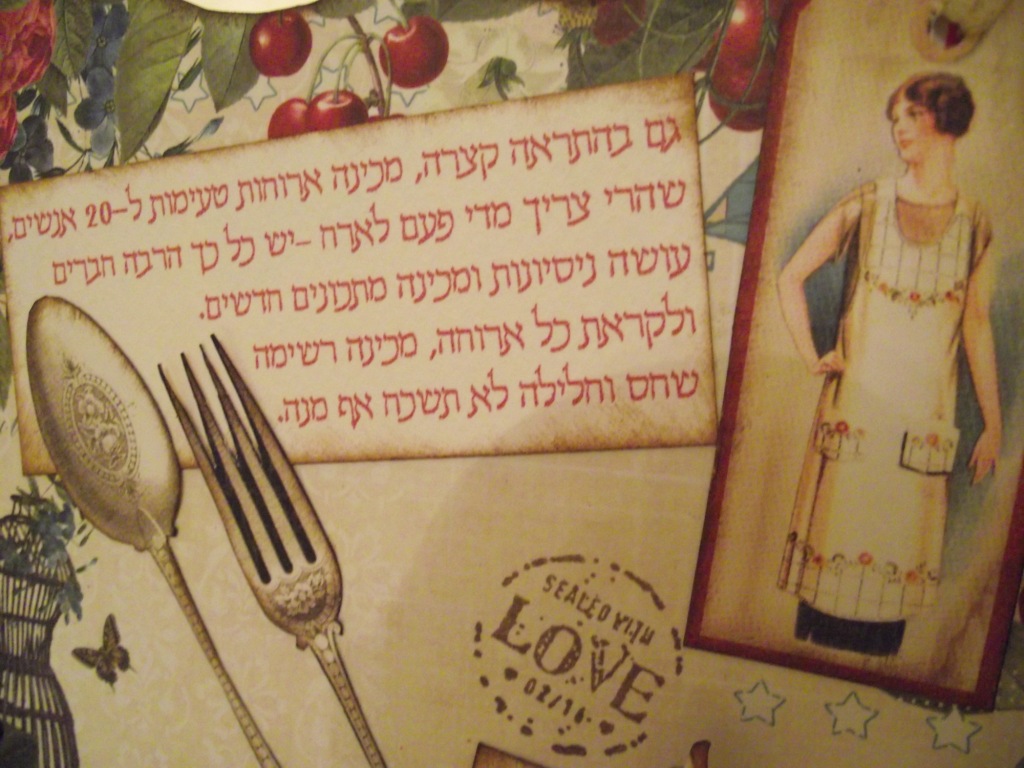 גם בהתראה קצרה, מכינה ארוחות טעימות ל-20 אנשים,
שהרי צריך מדי פעם לארח -יש כל כך הרבה חברים
עושה ניסיונות ומכינה מתכונים חדשים.
ולקראת כל ארוחה, מכינה רשימה
שחס וחלילה לא תשכח אף מנה.
SEALED WITH
LOVE
02/16